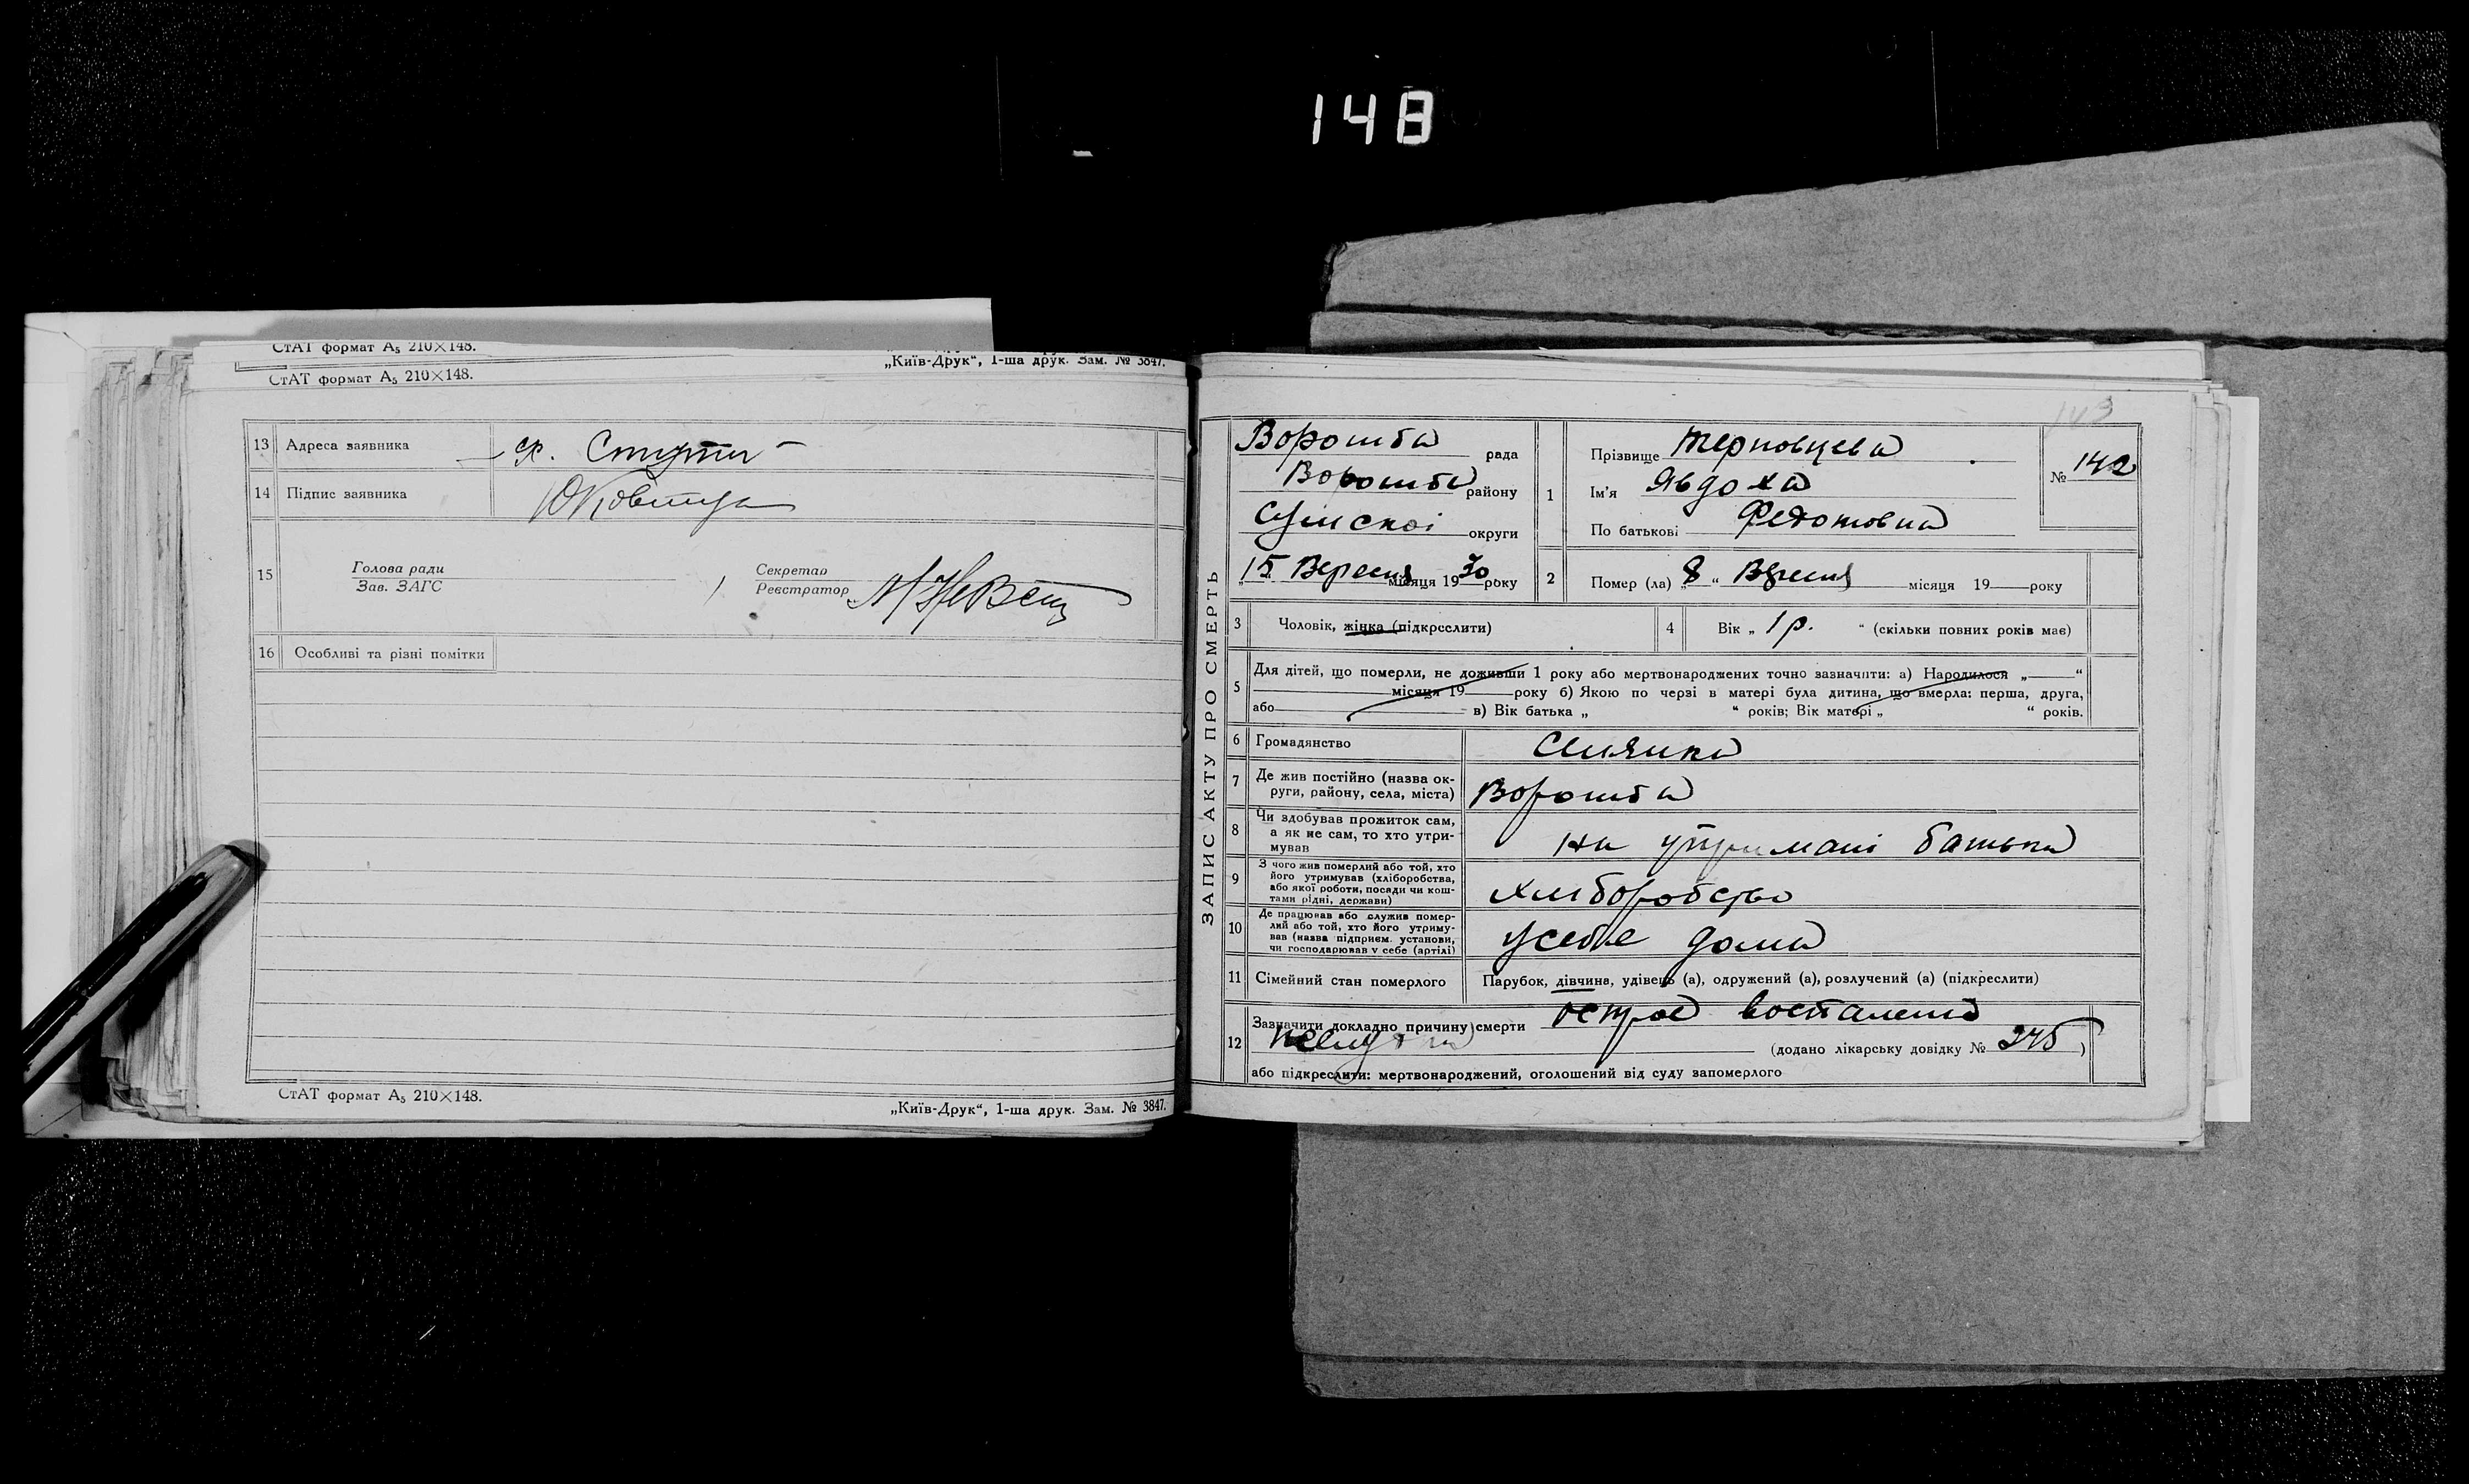 148
СтАТ формат А₅ 210×148.
„Київ-Друк“, 1-ша друк. Зам. № 3847.
СтАТ формат А₅ 210×148.
13 Адреса заявника х.
14 Підпис заявника
15 Голова ради
Зав. ЗАГС
Секретар
Реєстратор
16 Особливі та різні помітки
СтАТ формат А₅ 210×148.
„Київ-Друк“, 1-ша друк. Зам. № 3847.
143
ЗАПИС АКТУ ПРО СМЕРТЬ
Ворожба рада
Ворожба району
Сумскоі округи
„15“ Вересня місяця 1930 року
1 Прізвище Терновцева
Ім'я Явдоха
По батькові Федотовна
№ 142
2 Помер (ла) „8“ Вересня місяця 19 року
3 Чоловік, жінка (підкреслити)
4 Вік „ 1 р. “ (скільки повних років має)
5 Для дітей, що померли, не доживши 1 року або мертвонароджених точно зазначити: а) Народилося „ “
місяця 19 року б) Якою по черзі в матері була дитина, що вмерла: перша, друга,
або в) Вік батька „ “ років; Вік матері „ “ років.
6 Громадянство
7 Де жив постійно (назва ок-
руги, району, села, міста) Ворожба
8 Чи здобував прожиток сам,
а як не сам, то хто утри-
мував на утримані батька
9 З чого жив померлий або той, хто
його утримував (хліборобства,
або якої роботи, посади чи кош-
тами рідні, держави) хліборобство
10 Де працював або служив помер-
лий або той, хто його утриму-
вав (назва підприєм. установи,
чи господарював у себе (артілі) усебе дома
11 Сімейний стан померлого Парубок, дівчина, удівець (а), одружений (а), розлучений (а) (підкреслити)
12 Зазначити докладно причину смерти острое воспаление
(додано лікарську довідку № 245)
або підкреслити: мертвонароджений, оголошений від суду запомерлого